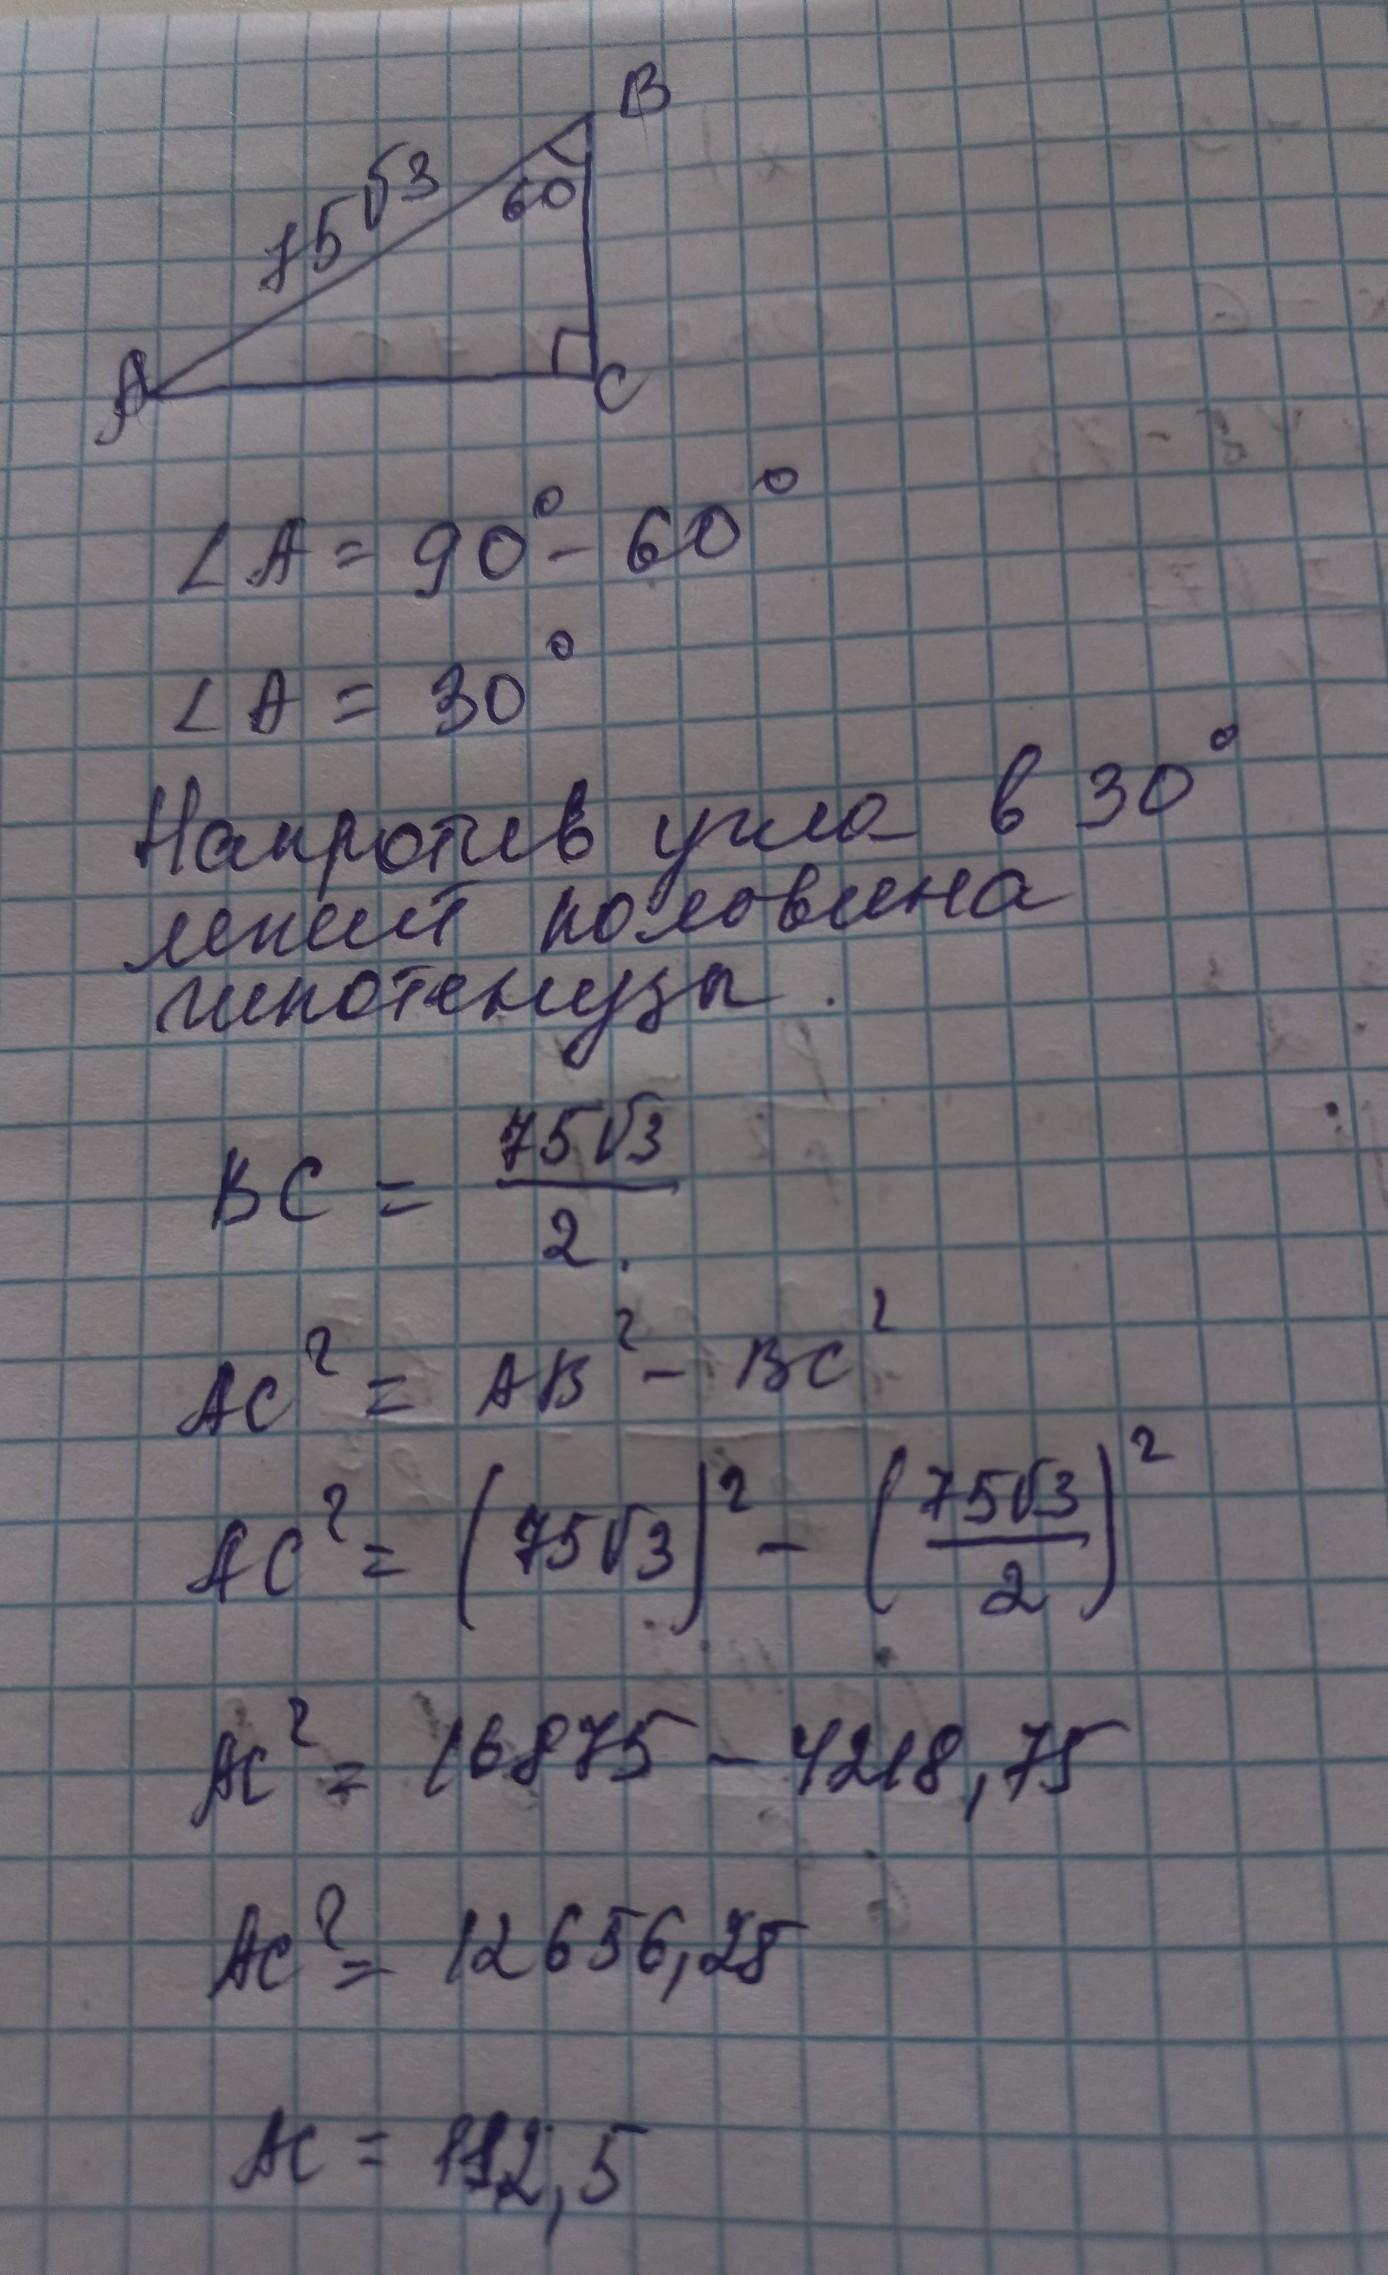 B
75√3
60
A
C
∠A = 90° - 60°
∠A = 30°
Напротив угла в 30°
лежит половина
гипотенузы.
BC = 75√3/2.
AC² = AB² - BC²
AC² = (75√3)² - (75√3/2)²
AC² = 16875 - 4218,75
AC² = 12656,25
AC = 112,5